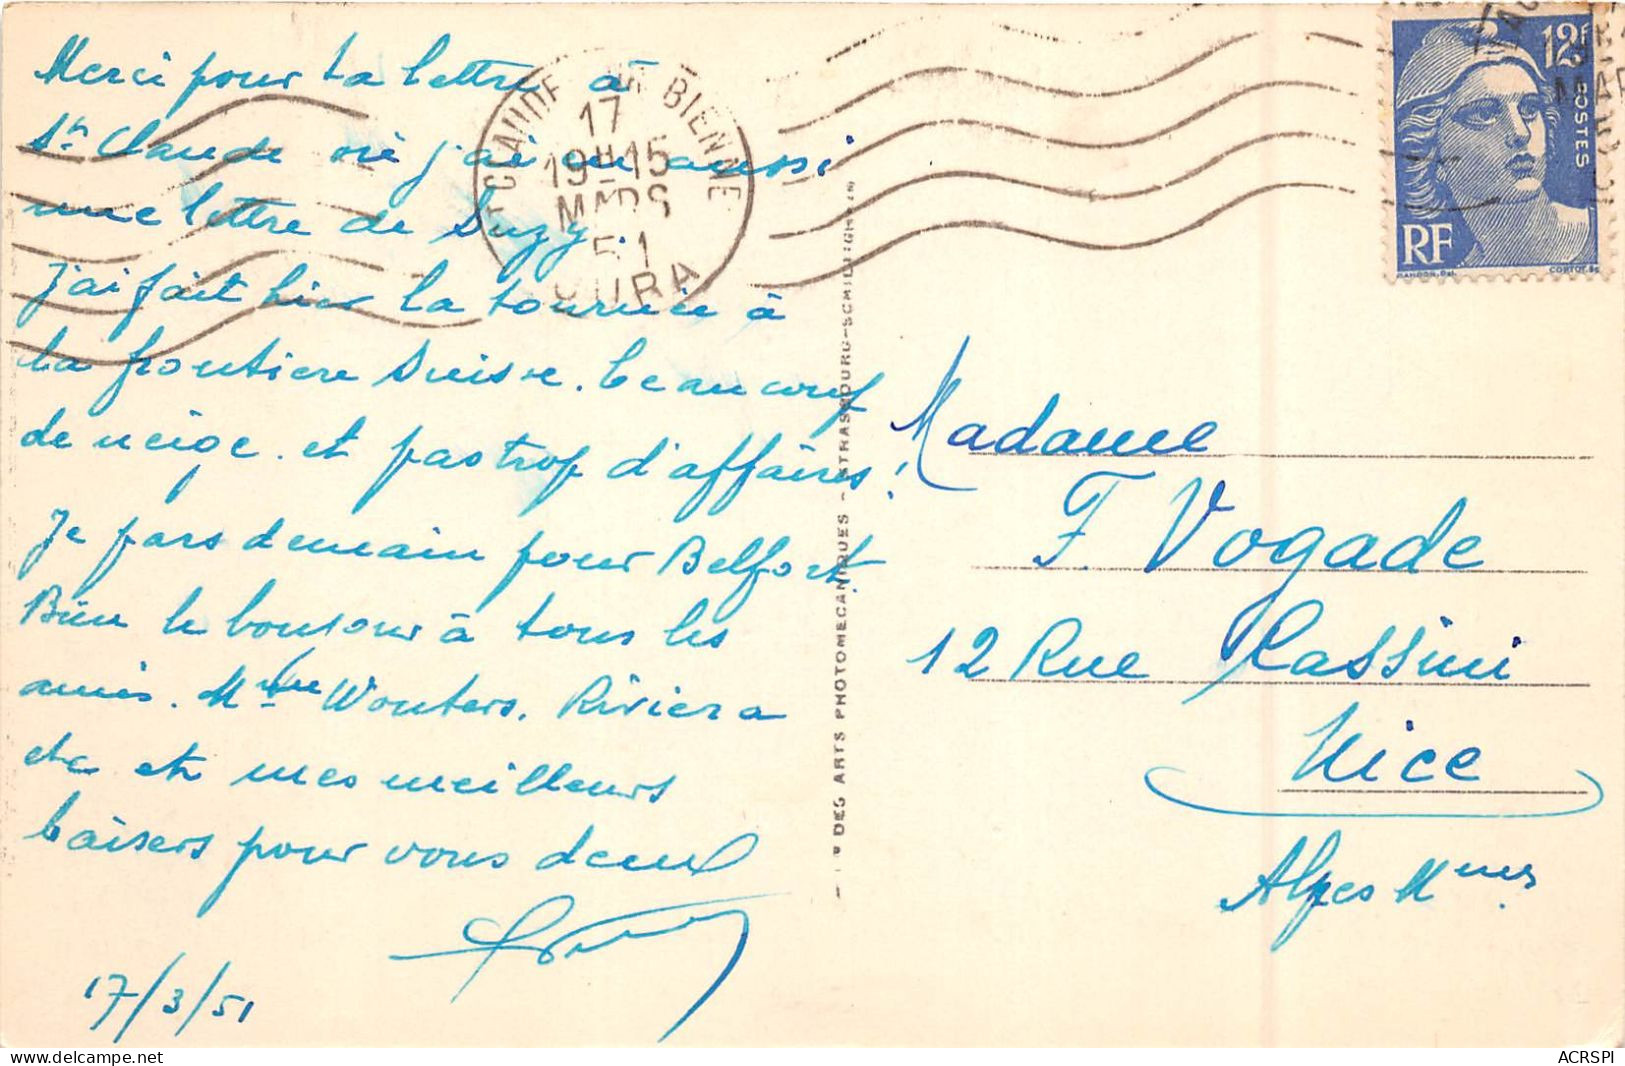 Merci pour ta lettre à
St Claude où j'ai eu aussi
une lettre de Suzy.
J'ai fait hier la tournée à
la frontière Suisse. beaucoup
de neige. et pas trop d'affaires!
Je pars demain pour Belfort.
Bien le bonjour à tous les
amis. Mme Wouters, Riviera
etc et mes meilleurs
baisers pour vous deux
17/3/51
CLAUDE SUR BIENNE
17
19H15
MARS
51
JURA
DES ARTS PHOTOMECANIQUES - STRASBOURG-SCHILTIGHEIM
12F
POSTES
RF
GANDON. Del.
CORTOT. Sc
MAR
Madame
F. Vogade
12 Rue Cassini
Nice
Alpes Mmes
ACRSPI